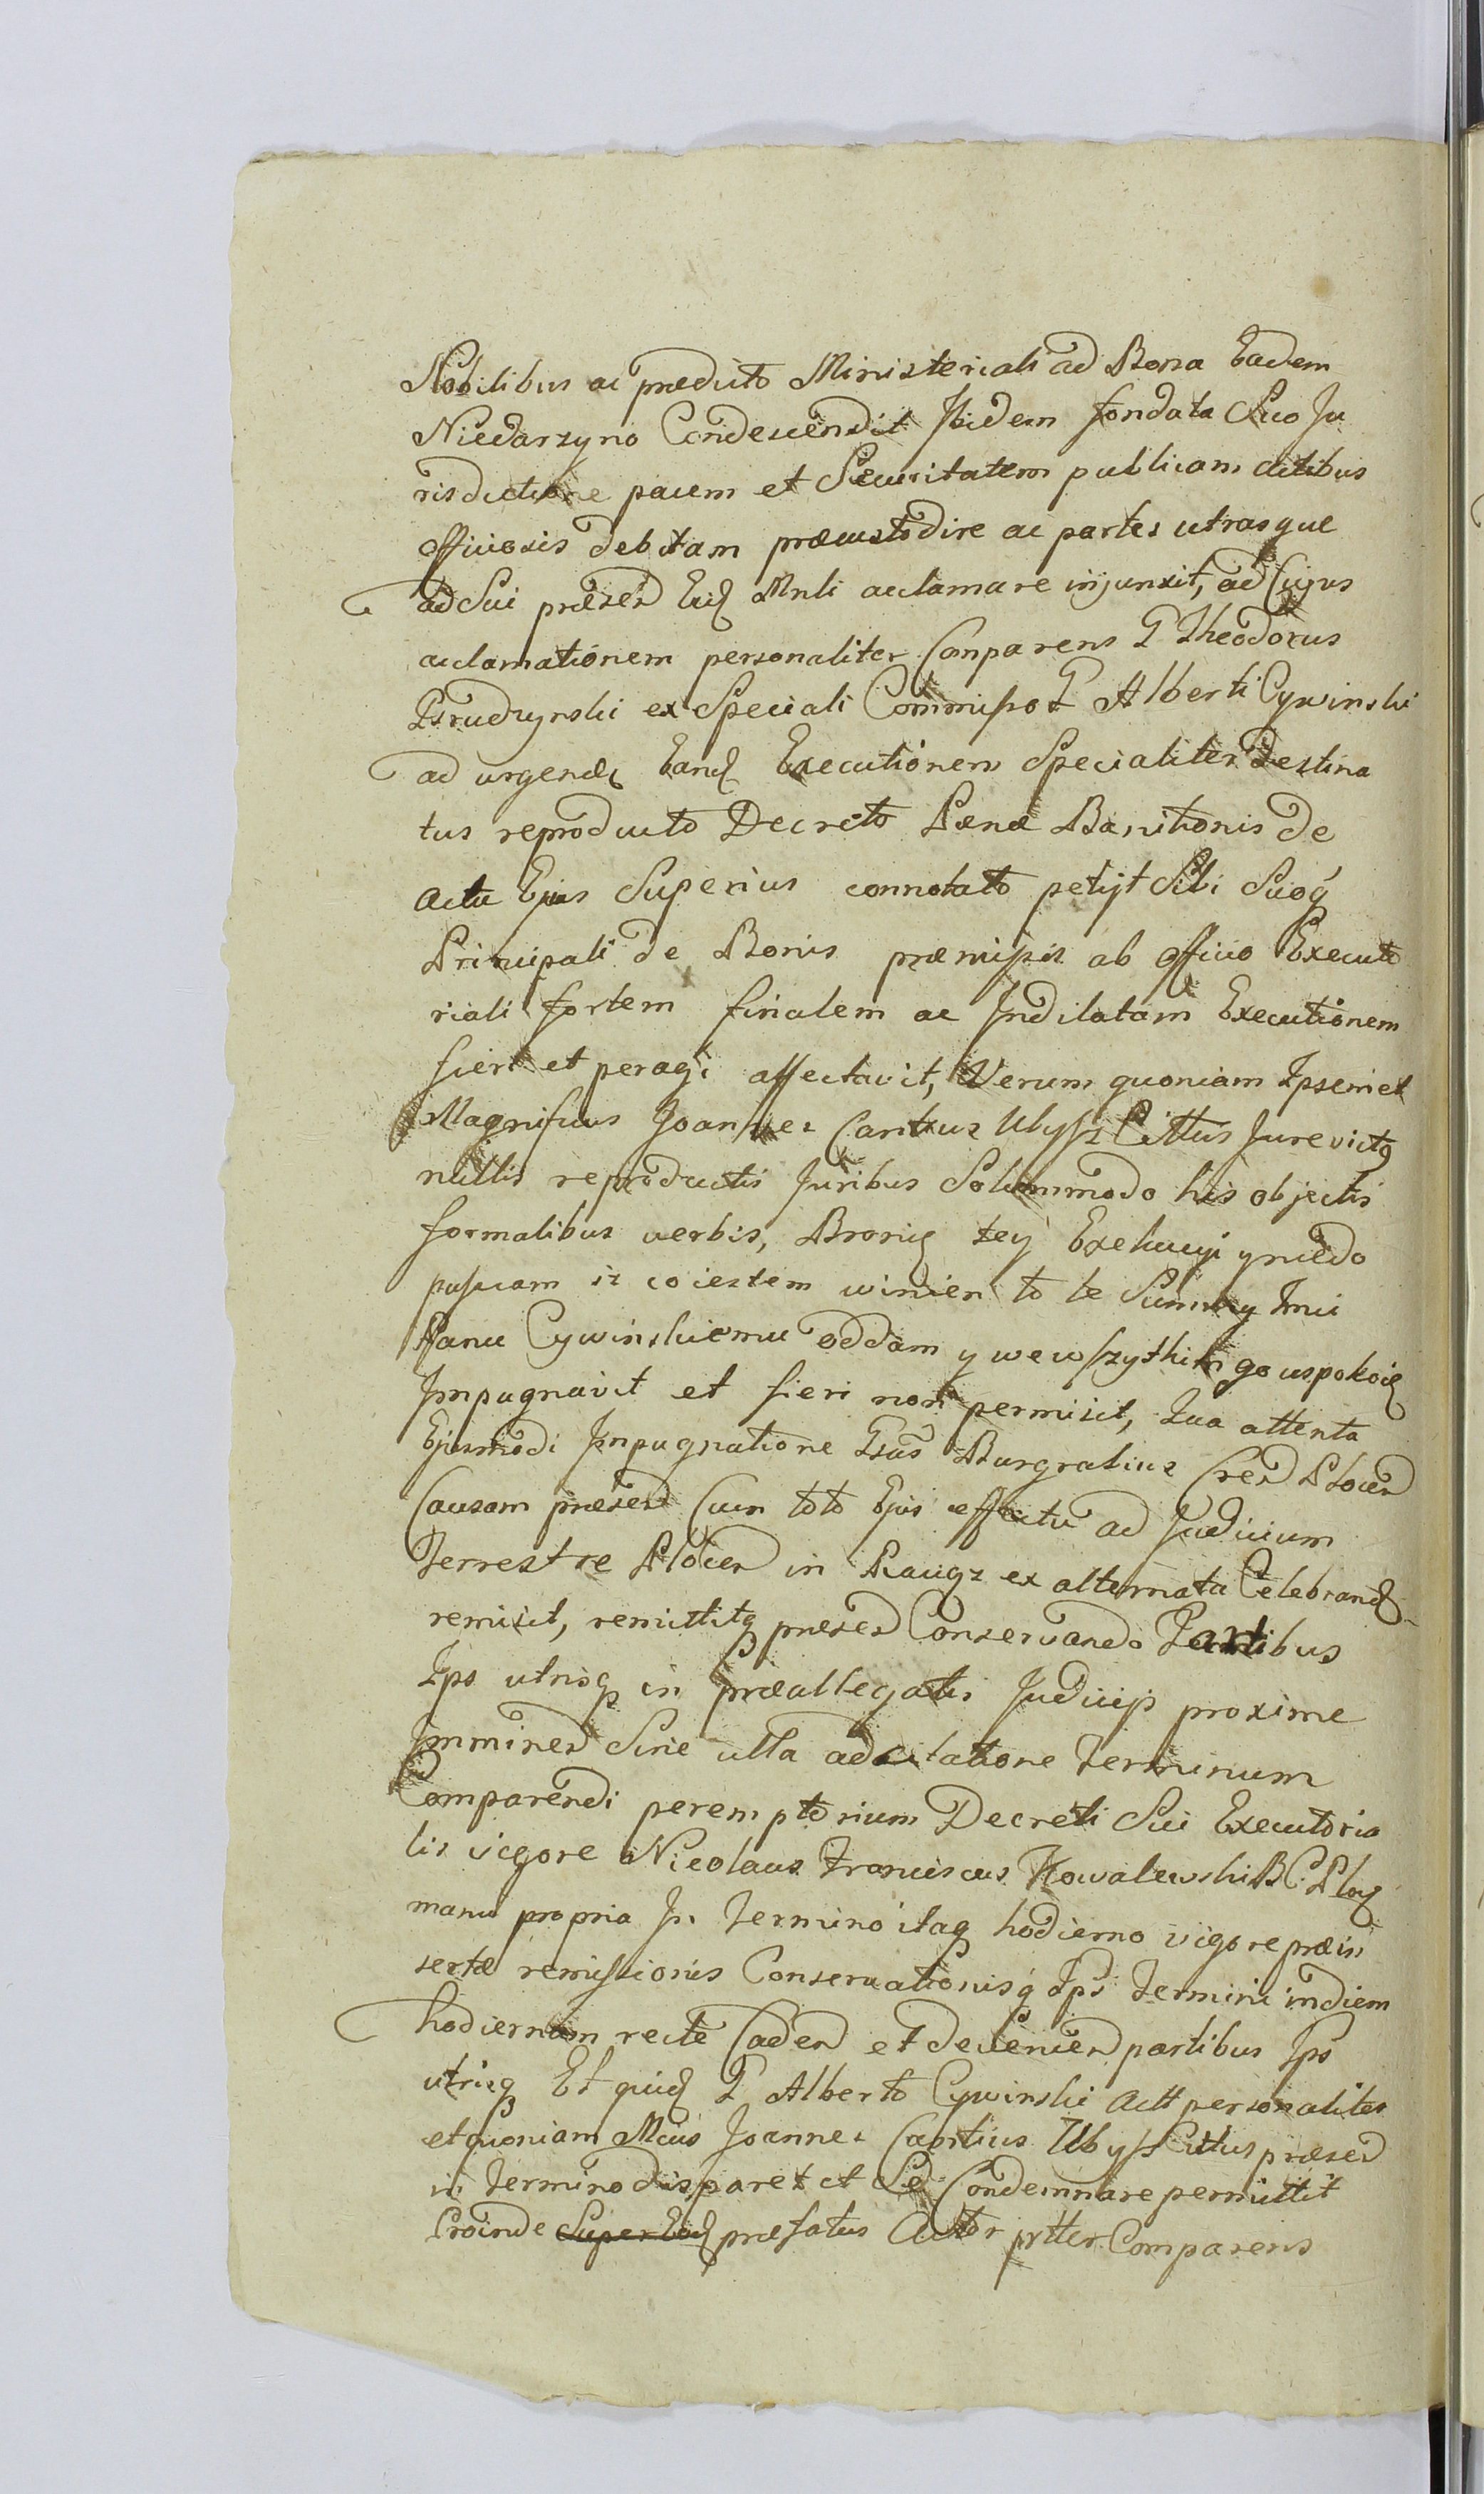 Nobilibus ac prædicto Ministeriali ad Bona Eadem
Niedarzyno Condescendit Ibidem fondata Suo Ju
risdictione pacem et Securitatem publicam actibus
officiosis debitam præcustodire ac partes utrasque
ad Sui præsen Eid Mnli acclamare injunxit, ad Cujus
acclamationem personaliter Conparens G Theodorus
Grudzynski ex Speciali Commisso G Alberti Cywinski
ad urgend Eand Executionem Specialiter Destina
tus reproducto Decreto Pænæ Banitionis de
actu Ejus Superius connotato petijt Sibi Suoq
Principali de Bonis præmissis ab officio Executo
riali fortem finalem ac Indilatam Executionem
fieri et peragi affectavit, Verum quoniam Ipsemet
Magnificus Joannes Cantius Ulyss Cittus Jurevictq
nullis reproductis Juribus Solummodo his objectis
formalibus verbis, Bronię tey Exekucyi y niedo
puscam iz co iestem winien to te Summy Imci
Panu Cywinskiemu oddam y wewszythkim go uspokoię
Inpugnavit et fieri non permisit, Qua attenta
Ejusmodi Inpugnatione Gsus Burgrabius Cren Plocen
Causam præsen Cum toto Ejus effectu ad Judicium
Terrestre Plocen in Raugz ex alternata Celebrand
remisit, remittitq præsen Conservando Partibus
Ips utrisq in Præallegatis Judicijs proxime
Imminen Sine ulla adcitatione Terminum
Comparendi peremptorium Decreti Sui Executoria
lis vigore Nicolaus Franciscus Kowalewski B C Ploc
manu propria In Termino itaq hodierno vigore præin
sertæ remissionis Conservationisq Ips Termini in diem
hodiernam recte Caden et devenien partibus Ips
utrisq Et quid G Alberto Cywinski Actt personaliter
et quoniam Mcus Joannes Cantius Ulyss Cittus præsen
in Termino disparet et Se Condemnare permittit
Proinde Super Eod præfatus Actor prtter Comparens